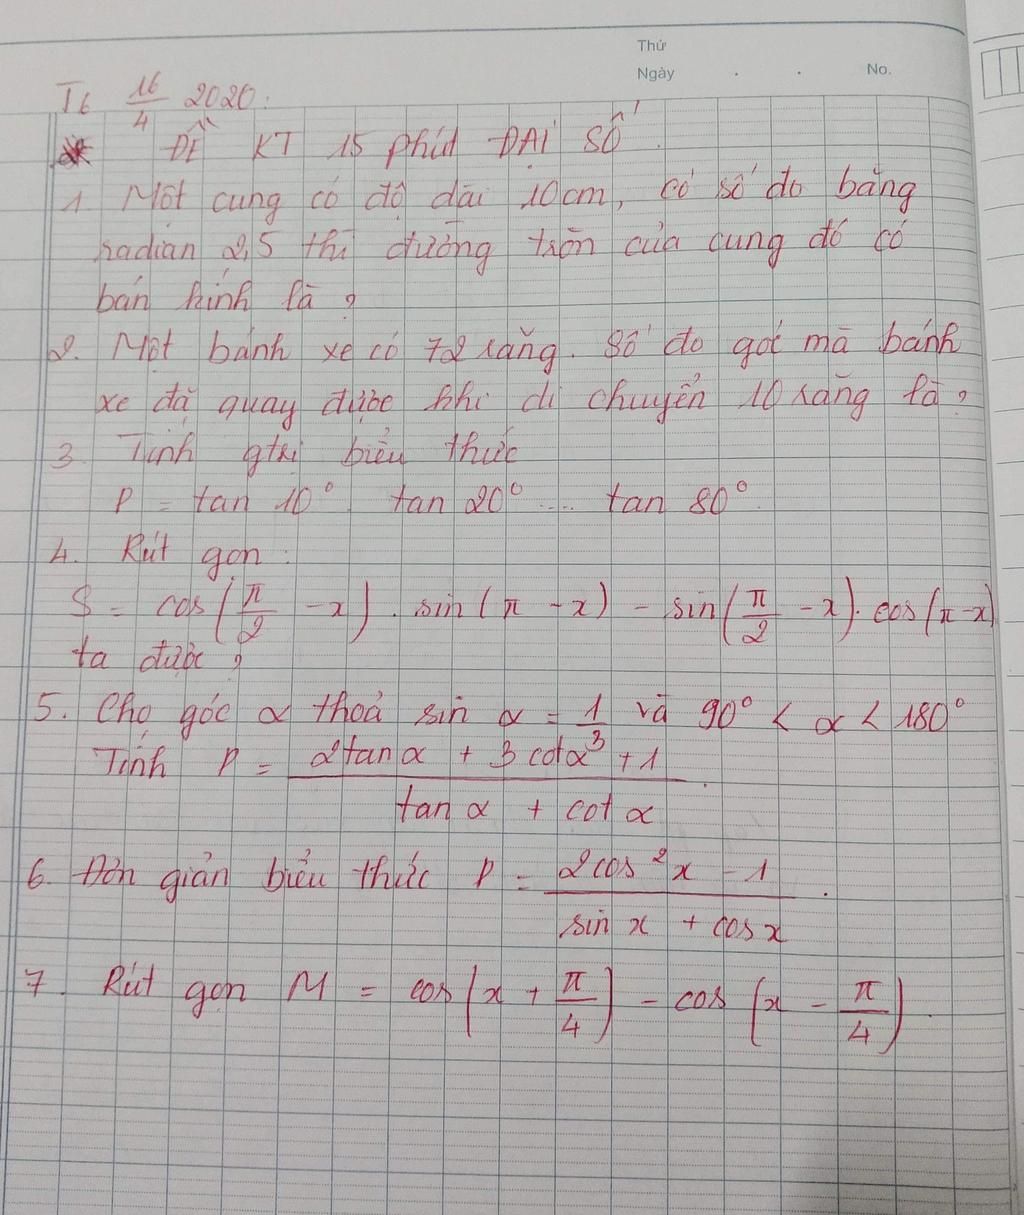 Thứ
Ngày . . No.
T6 16/4 2020.
ĐỀ KT 15 phút ĐẠI SỐ.
1 Một cung có độ dài 10cm, có số đo bằng
radian 2,5 thì đường tròn của cung đó có
bán kính là ?
2. Một bánh xe có 72 răng. Số đo góc mà bánh
xe đã quay được khi di chuyển 10 răng là ?
3 Tính gtrị biểu thức
P = tan 10° tan 20° .... tan 80°
4. Rút gọn :
S = cos(π/2 - x) . sin(π - x) - sin(π/2 - x) . cos(π - x)
ta được ?
5. Cho góc α thoả sin α = 1/3 và 90° < α < 180°
Tính P = (2tan α + 3 cot α + 1)/(tan α + cot α)
6. Đơn giản biểu thức P = (2cos²x - 1)/(sin x + cos x) .
7. Rút gọn M = cos(x + π/4) - cos(x - π/4) .